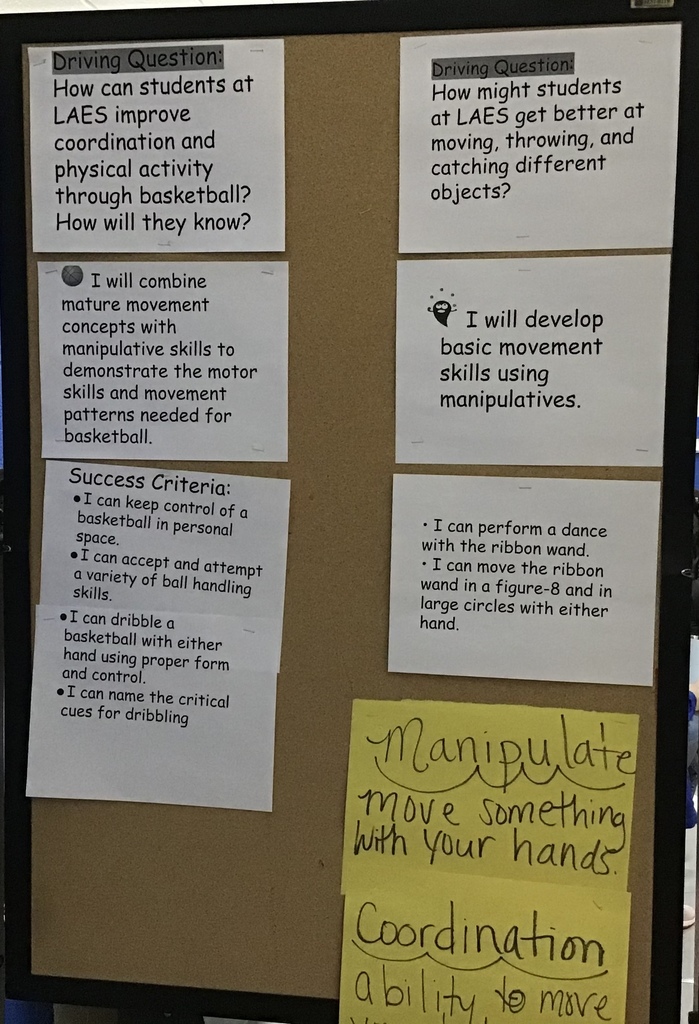 Driving Question:
How can students at
LAES improve
coordination and
physical activity
through basketball?
How will they know?
I will combine
mature movement
concepts with
manipulative skills to
demonstrate the motor
skills and movement
patterns needed for
basketball.
Success Criteria:
• I can keep control of a
basketball in personal
space.
• I can accept and attempt
a variety of ball handling
skills.
• I can dribble a
basketball with either
hand using proper form
and control.
• I can name the critical
cues for dribbling
Driving Question:
How might students
at LAES get better at
moving, throwing, and
catching different
objects?
I will develop
basic movement
skills using
manipulatives.
· I can perform a dance
with the ribbon wand.
· I can move the ribbon
wand in a figure-8 and in
large circles with either
hand.
Manipulate
move something
with your hands.
Coordination
ability to move